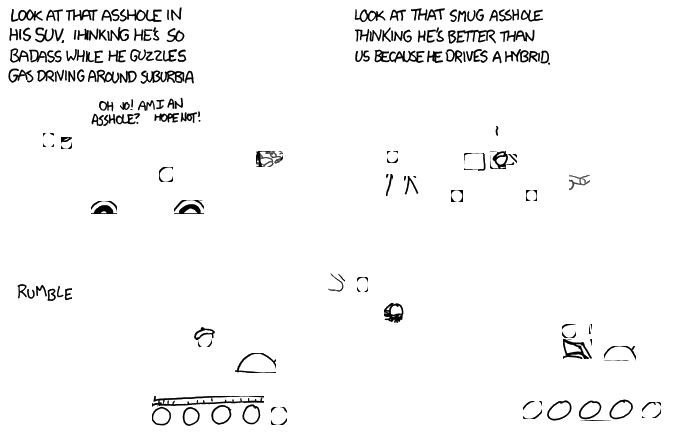 LOOK AT THAT ASSHOLE IN
HIS SUV. THINKING HE'S SO
BADASS WHILE HE GUZZLES
GAS DRIVING AROUND SUBURBIA
OH NO! AM I AN
ASSHOLE? HOPE NOT!
LOOK AT THAT SMUG ASSHOLE
THINKING HE'S BETTER THAN
US BECAUSE HE DRIVES A HYBRID.
RUMBLE